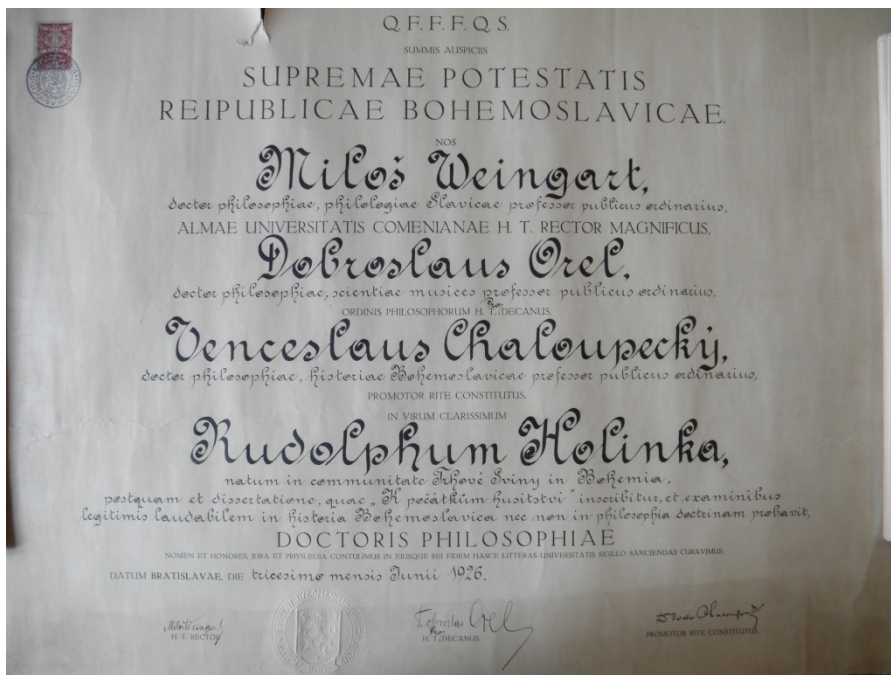 Q. F. F. F. Q. S.
SUMMIS AUSPICIIS
SUPREMAE POTESTATIS
REIPUBLICAE BOHEMOSLAVICAE.
NOS
Miloš Weingart,
doctor philosophiae, philologiae Slavicae professor publicus ordinarius,
ALMAE UNIVERSITATIS COMENIANAE H. T. RECTOR MAGNIFICUS,
Dobroslaus Orel,
doctor philosophiae, scientiae musices professor publicus ordinarius,
ORDINIS PHILOSOPHORUM H. T. pro DECANUS,
Venceslaus Chaloupecký,
doctor philosophiae, historiae Bohemoslavicae professor publicus ordinarius,
PROMOTOR RITE CONSTITUTUS,
IN VIRUM CLARISSIMUM
Rudolphum Holinka,
natum in communitate Trhové Sviny in Bohemia,
postquam et dissertatione, quae „K počátkům husitství" inscribitur, et examinibus
legitimis laudabilem in historia Bohemoslavica nec non in philosophia doctrinam probavit,
DOCTORIS PHILOSOPHIAE
NOMEN ET HONORES, JURA ET PRIVILEGIA CONTULIMUS IN EIUSQUE REI FIDEM HASCE LITTERAS UNIVERSITATIS SIGILLO SANCIENDAS CURAVIMUS.
DATUM BRATISLAVAE, DIE tricesimo mensis Junii 1926.
H. T. RECTOR.
Dobroslav Orel
H. T. pro DECANUS.
PROMOTOR RITE CONSTITUTUS.